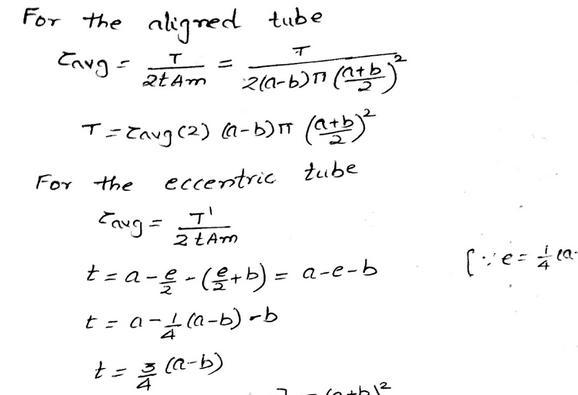 For the aligned tube
τavg = T / 2tAm = T / 2(a-b)π((a+b)/2)²
T = τavg(2) (a-b)π ((a+b)/2)²
For the eccentric tube
τavg = T' / 2tAm
t = a - e/2 - (e/2 + b) = a-e-b [∵ e = 1/4 (a-
t = a - 1/4 (a-b) - b
t = 3/4 (a-b)